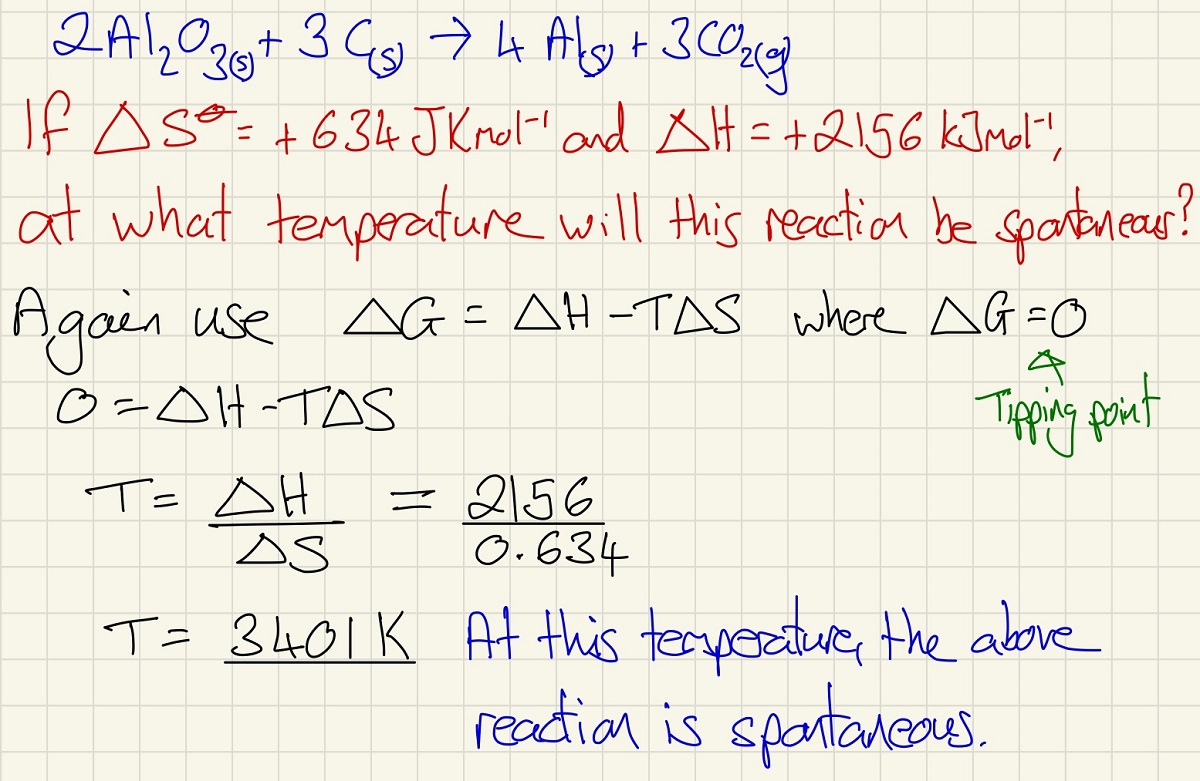 2Al₂O₃(s) + 3C(s) → 4Al(s) + 3CO₂(g)
If △S⦵ = +634 JKmol⁻¹ and △H = +2156 kJmol⁻¹,
at what temperature will this reaction be spontaneous?
Again use △G = △H - T△S where △G = 0
Tipping point
0 = △H - T△S
T = △H/△S = 2156/0.634
T = 3401K At this temperature, the above
reaction is spontaneous.